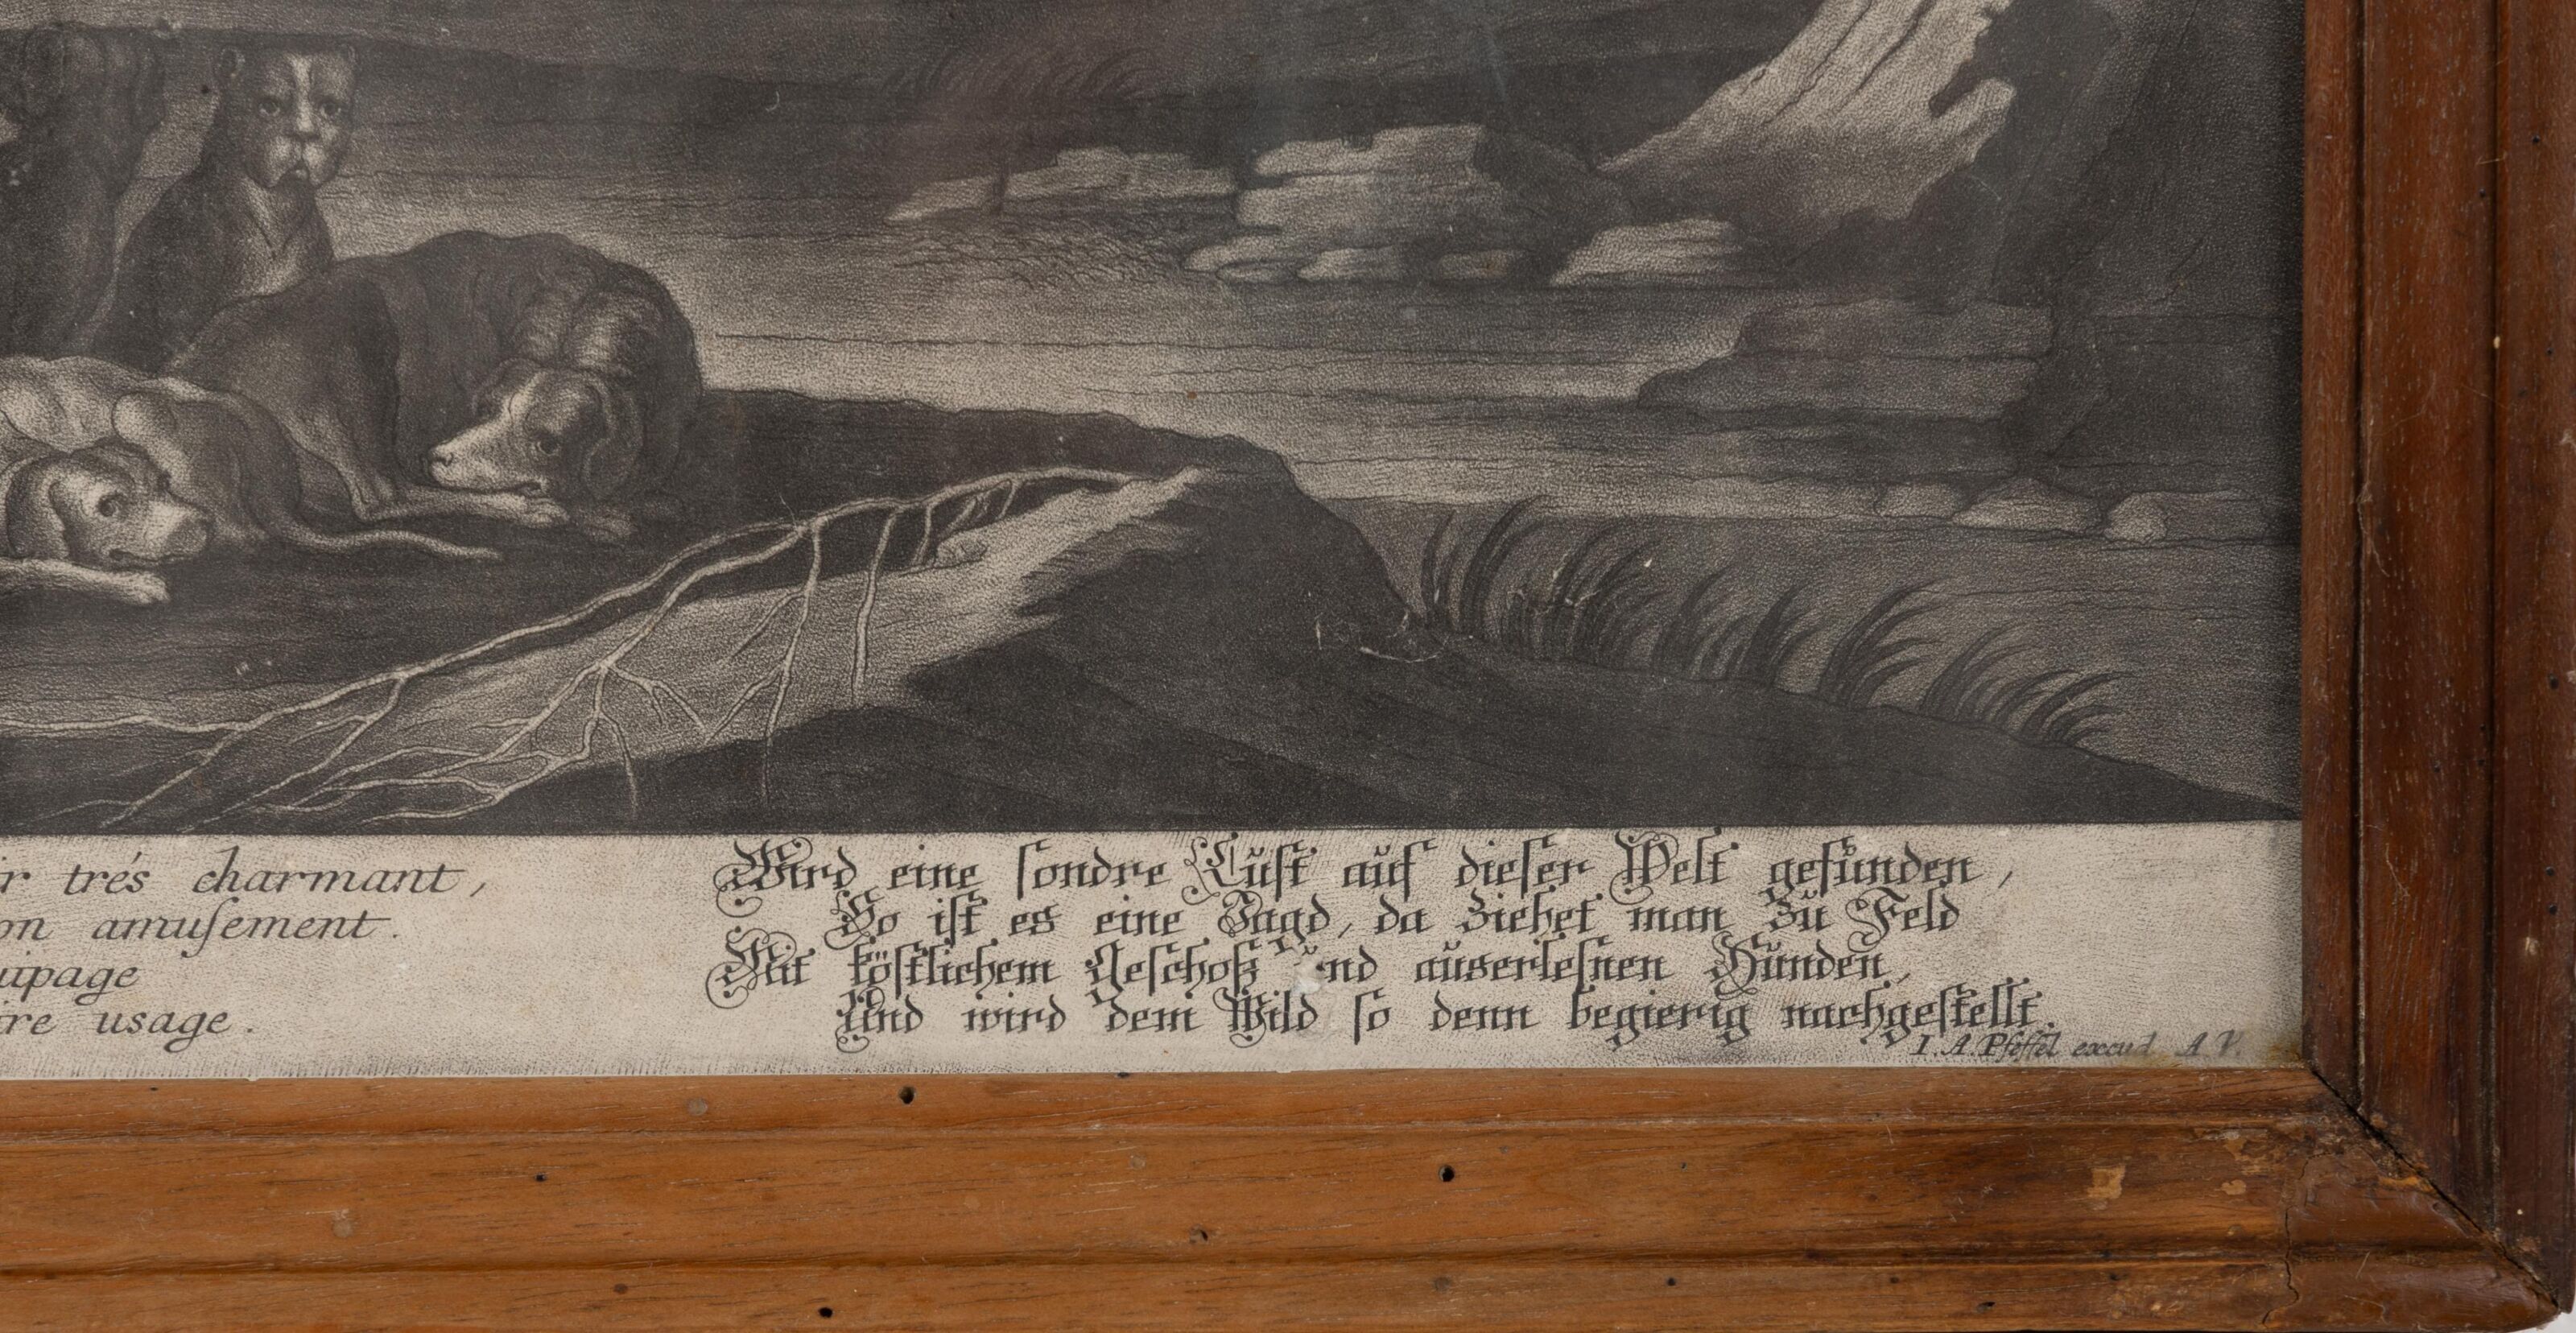 r trés charmant,
on amuſement.
uipage
re usage.
Wird eine ſondre Luſt auf dieſer Welt gefunden,
So iſt es eine Jagd, da ziehet man zu Feld
Mit köſtlichem Geſchoß und auserleſnen Hunden,
Und wird dem Wild ſo denn begierig nachgeſtellt.
I. A. Pfeffel excud A V.